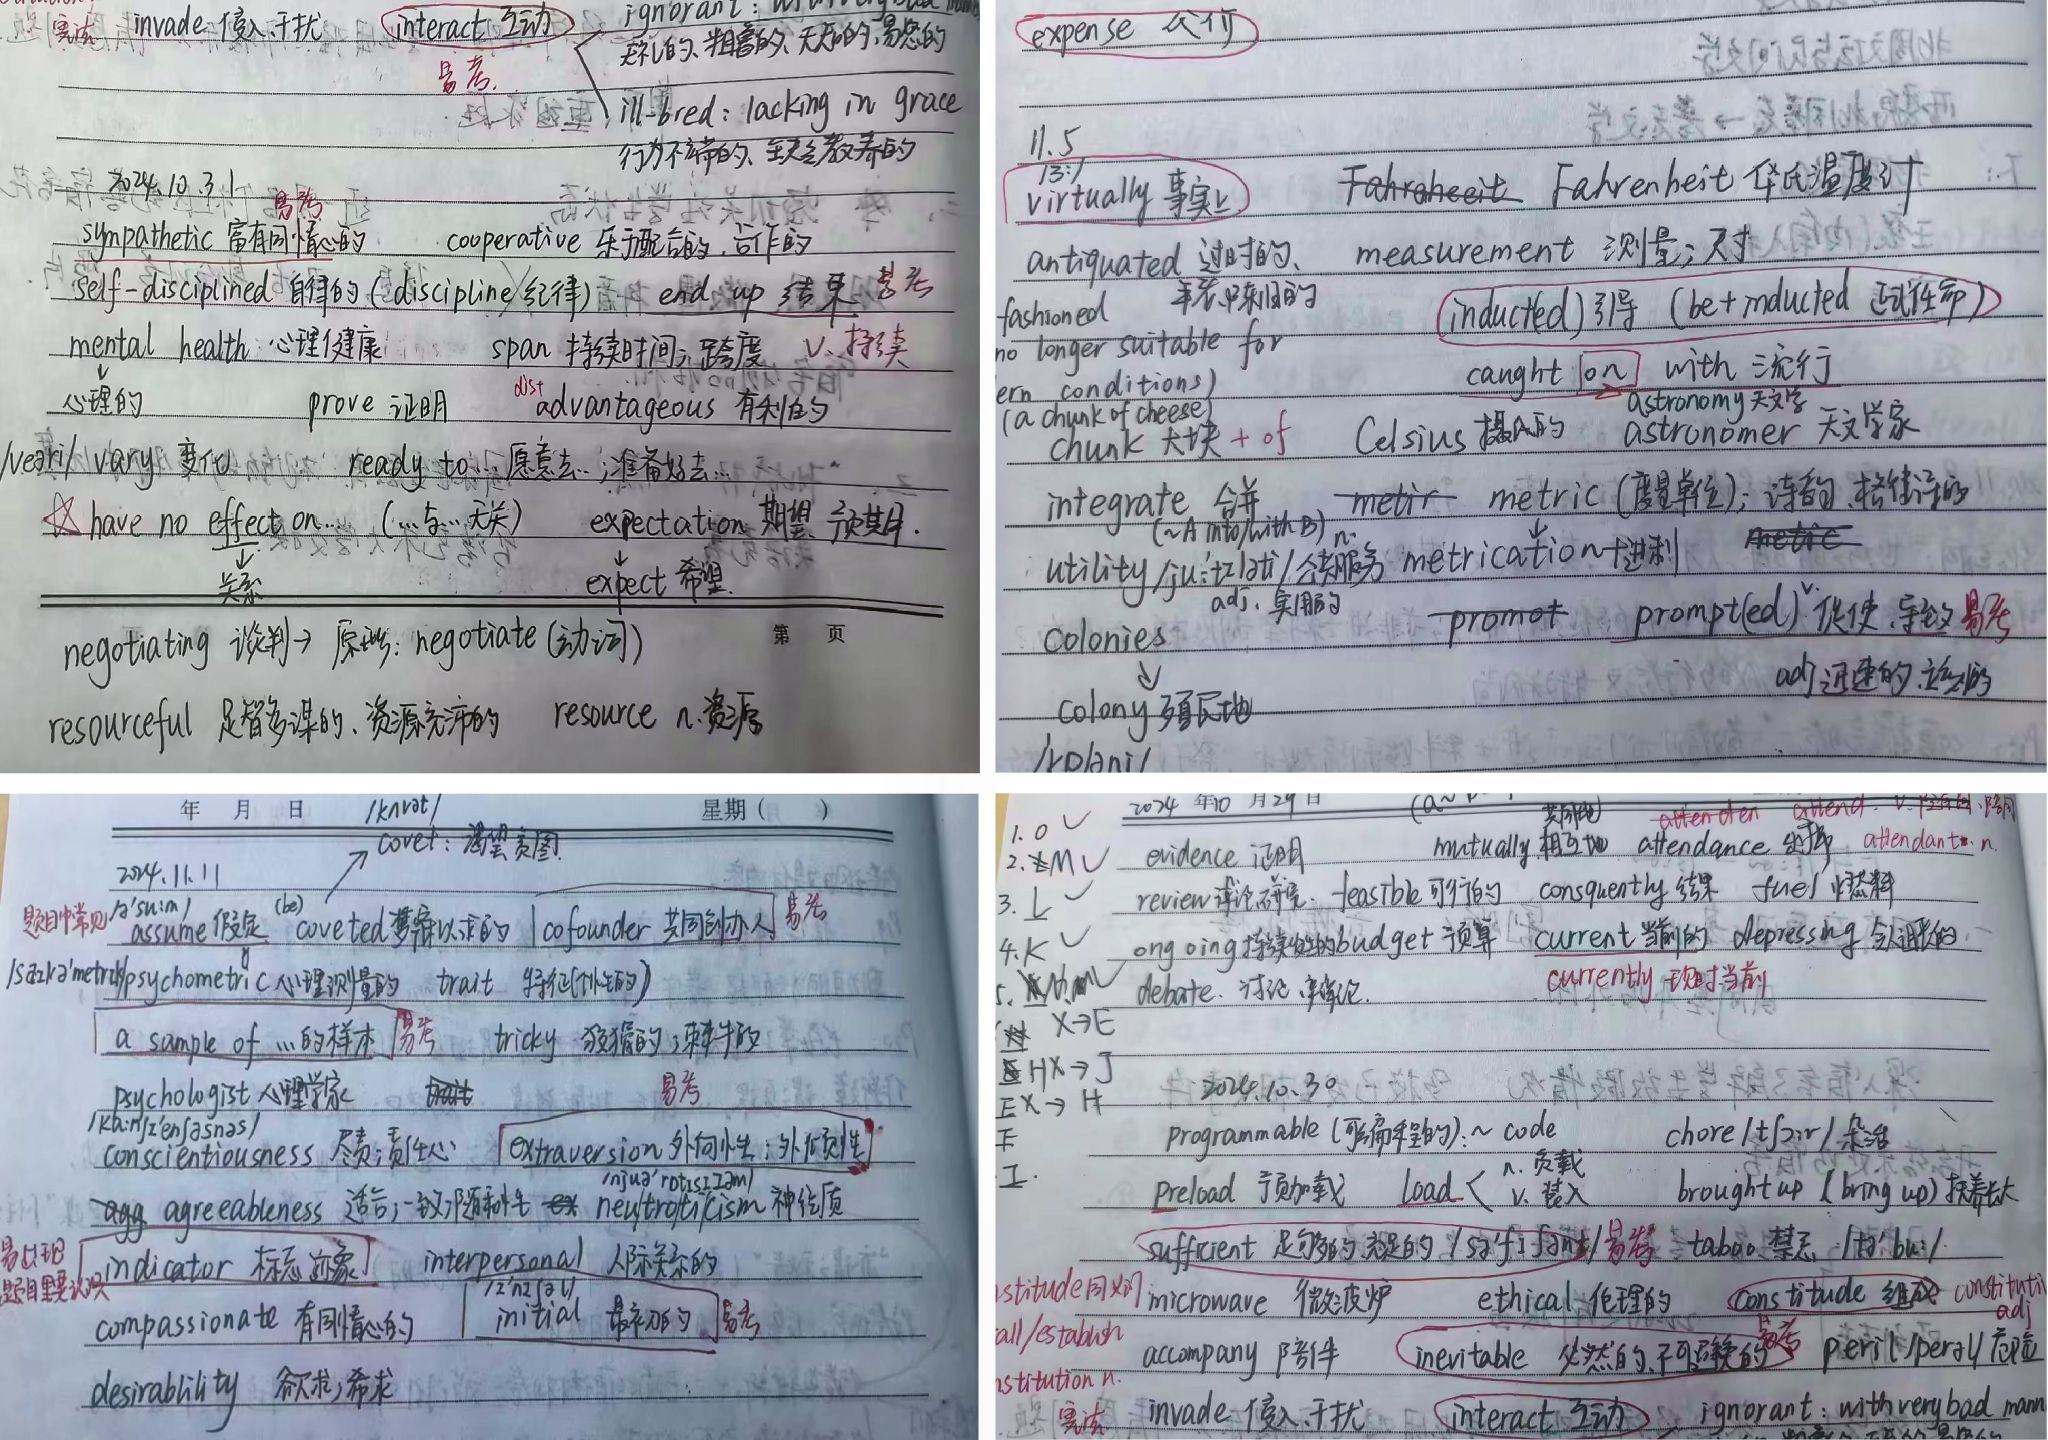 invade 侵入、干扰
interact 互动
ignorant:
易考
无礼的、粗鲁的、无知的、易怒的
ill-bred: lacking in grace
行为不端的、缺乏教养的
2024.10.31
易考
sympathetic 富有同情心的 cooperative 乐于配合的、合作的
self-disciplined 自律的 (discipline 纪律) end up 结果 易考
mental health 心理健康 span 持续时间;跨度 v. 持续
心理的 prove 证明 dis+ advantageous 有利的
/veəri/ vary 变化 ready to... 愿意去...;准备好去...
have no effect on... (...与...无关) expectation 期望、预期
关系 expect 希望
negotiating 谈判→ 原形: negotiate (动词)
第 页
resourceful 足智多谋的、资源充沛的 resource n. 资源
expense 代价
11.5
virtually 事实上 Fahrenheit 华氏温度计
antiquated 过时的、 measurement 测量;尺寸
年老陈旧的
fashioned inducted) 引导 (be + inducted 正式任命)
no longer suitable for
ern conditions) caught on with 流行
(a chunk of cheese) astronomy 天文学
chunk 大块 + of Celsius 摄氏的 astronomer 天文学家
integrate 合并 metric (度量单位);
(~A into/with B) n.
utility /ju:'tɪləti/ 公共服务 metrication 十进制
adj. 实用的
colonies prompt(ed) v. 促使、导致 易考
adj 迅速的、
colony 殖民地
年 月 日 /kʌvət/ 星期( )
covet: 渴望贪图
2024.11.11
/ə'su:m/ (be)
题目中常见 assume 假定 coveted 梦寐以求的 cofounder 共同创办人 易考
psychometric 心理测量的 trait 特征(个性的)
a sample of ...的样本 易考 tricky 狡猾的;棘手的
psychologist 心理学家 易考
conscientiousness 尽责;责任心 extraversion 外向性;外倾性
agreeableness 适合;一致;随和性 neu/tro/ti/cism 神经质
易出现
题目里要认识 indicator 标志 迹象 interpersonal 人际关系的
/ɪ'nɪʃəl/
compassionate 有同情心的 initial 最初的 易考
desirablility 欲求;希求
2024 年10 月29日
1. O
2. M evidence 证明 mutually 相互地 共同地 attendance 出席 attendant n.
3. L review 评论、研究 feasible 可行的 consquently 结果 fuel 燃料
4. K ongoing 持续性的 budget 预算 current 当前的 depressing 令人沮丧的
5. debate 讨论、辩论 currently 现时 当前
X→E
HX→J 2024.10.30
EX→H
F programmable (可编程的): ~ code chore /tʃɔ:r/ 杂活
I. preload 预加载 load n. 负载 v. 装入 brought up (bring up) 抚养长大
sufficient 足够多的 充足的 /sə'fɪʃənt/ 易考 taboo 禁忌 /tə'bu:/
microwave 微波炉 ethical 伦理的 constitude 组成
all/establish adj
accompany 陪伴 inevitable 必然的、不可避免的 易考 peril /perəl/ 危险
nstitution n.
宪法 invade 侵入、干扰 interact 互动 ignorant: with very bad mann